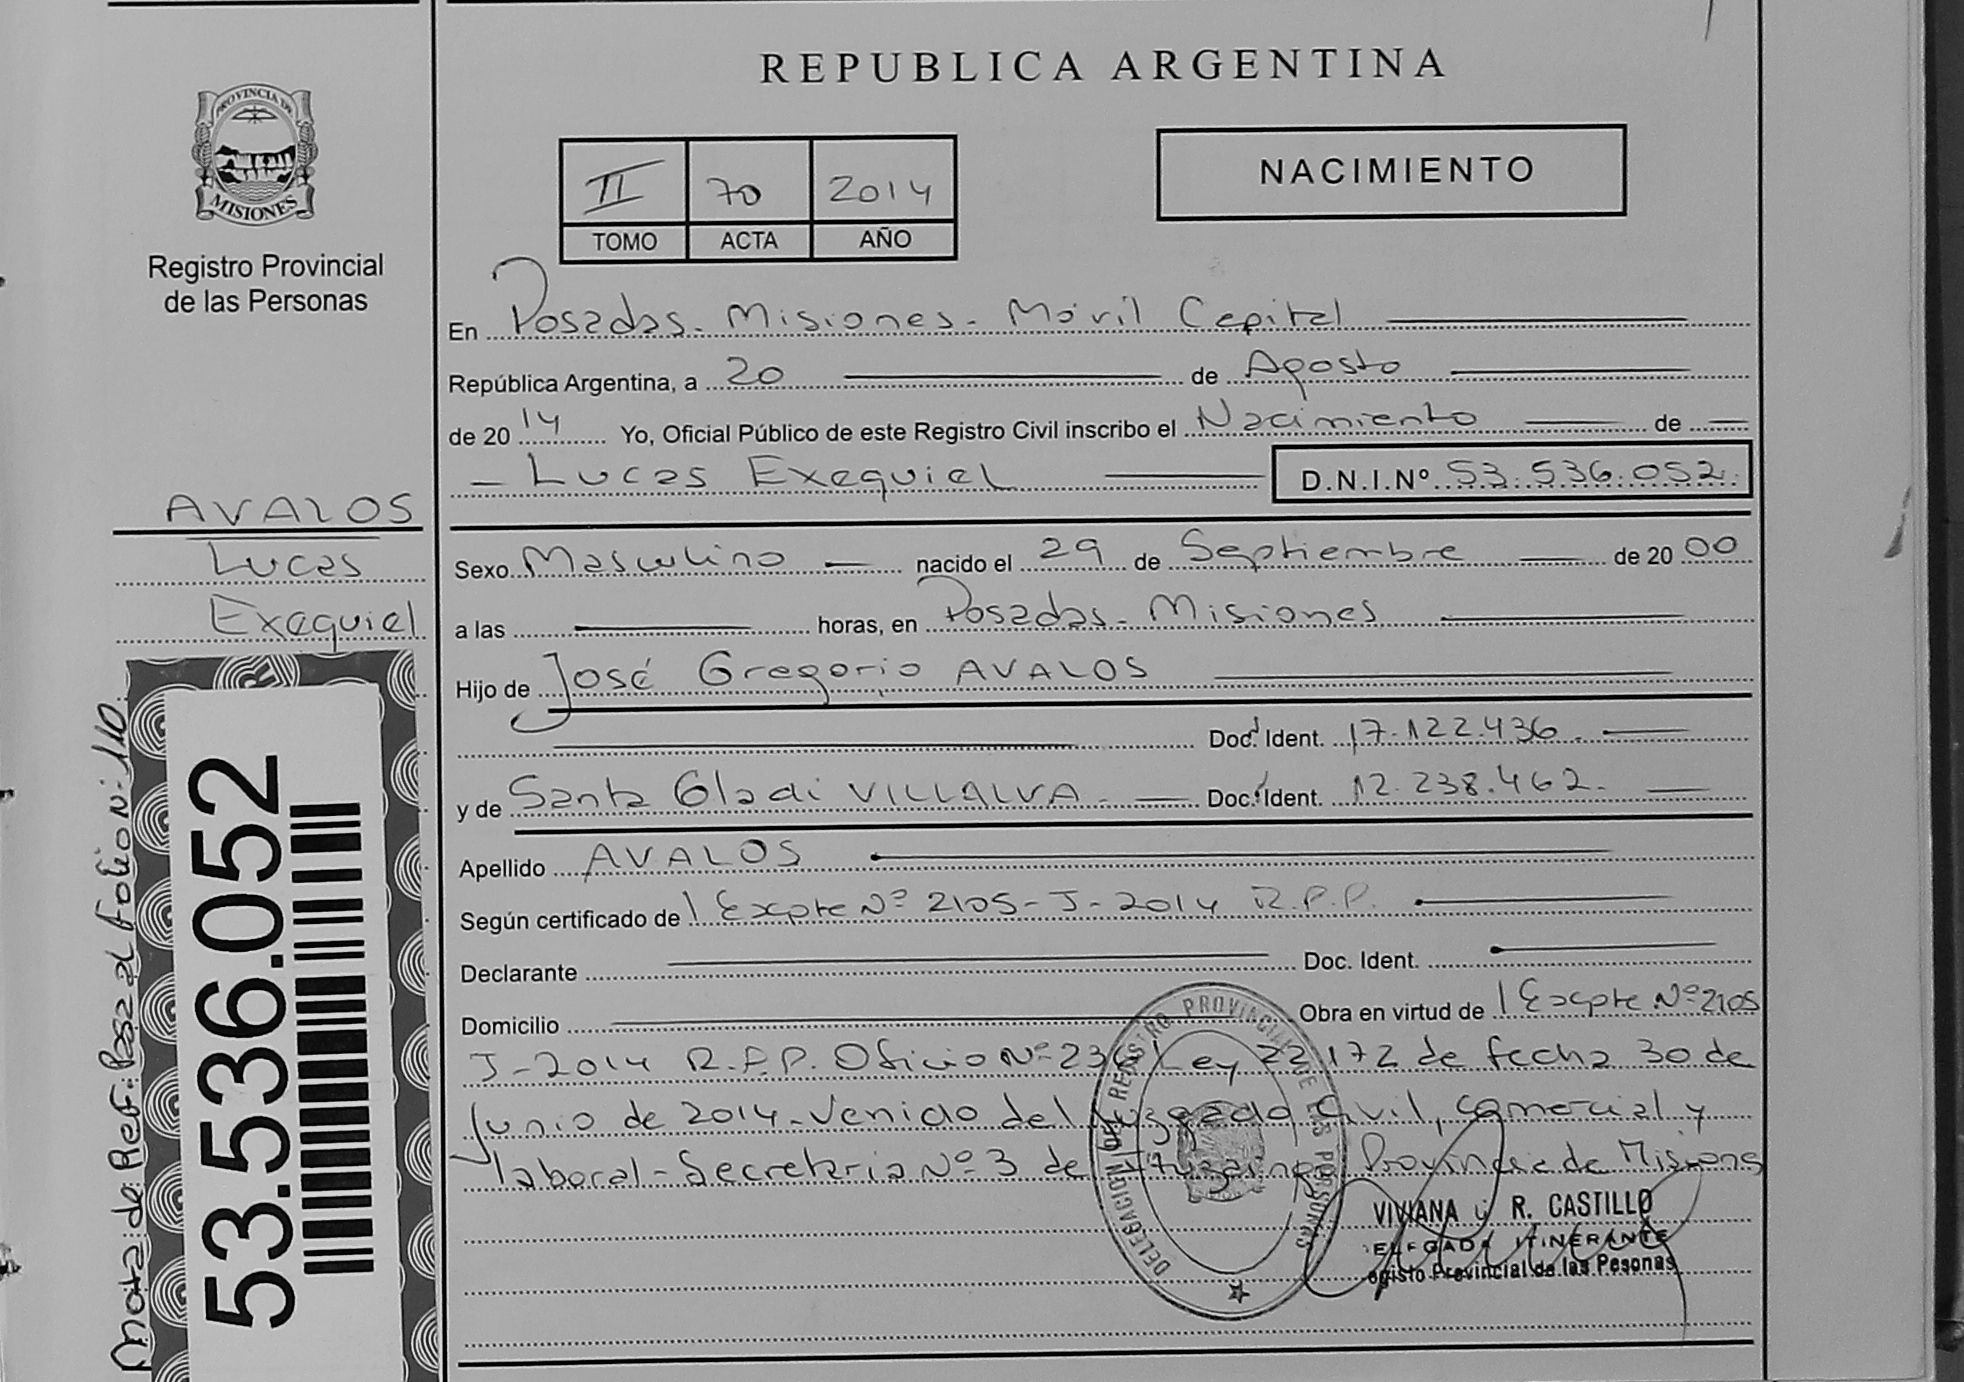 REPUBLICA ARGENTINA
PROVINCIA DE
MISIONES
Registro Provincial
de las Personas
II 70 2014
TOMO ACTA AÑO
NACIMIENTO
En Posadas - Misiones - Móvil Capital
República Argentina, a 20 de Agosto
de 20 14 Yo, Oficial Público de este Registro Civil inscribo el Nacimiento de
Lucas Exequiel D.N.I.Nº 53.536.052.
AVALOS
Lucas
Exequiel
Sexo Masculino nacido el 29 de Septiembre de 20 00
a las horas, en Posadas - Misiones
Hijo de José Gregorio AVALOS
Doc. Ident. 17.122.436.
y de Santa Gladi VILLALVA Doc. Ident. 12.238.462.
Apellido AVALOS
Según certificado de Expte Nº 2105-J-2014 R.P.P.
Declarante Doc. Ident.
Domicilio Obra en virtud de Expte Nº 2105
J-2014 R.P.P. Oficio Nº 236 Ley 22.172 de fecha 30 de
Junio de 2014 - Venido del Juzgado Civil, comercial y
laboral - Secretaria Nº 3 de Ituzaingo Provincia de Misions
DELEGACION DEL REGISTRO PROVINCIAL DE LAS PERSONAS
VIVIANA R. CASTILLO
ELEGADA ITINERANTE
egisto Provincial de las Pesonas
Nota de Ref: Pasa al folio N: 110
53.536.052